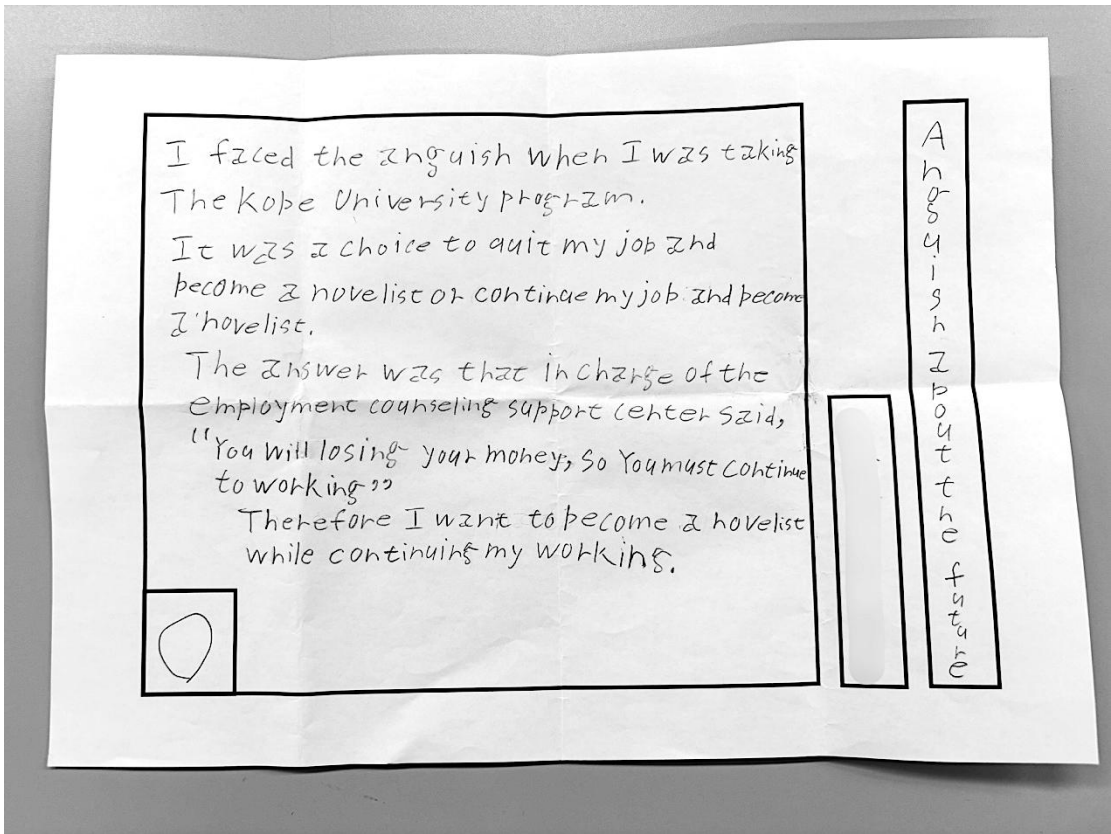 Anguish about the future
I faced the anguish when I was taking
The Kobe University program.
It was a choice to quit my job and
become a novelist or continue my job and become
a novelist.
The answer was that in charge of the
employment counseling support center said,
"You will losing your money, so You must continue
to working"
Therefore I want to become a novelist
while continuing my working.